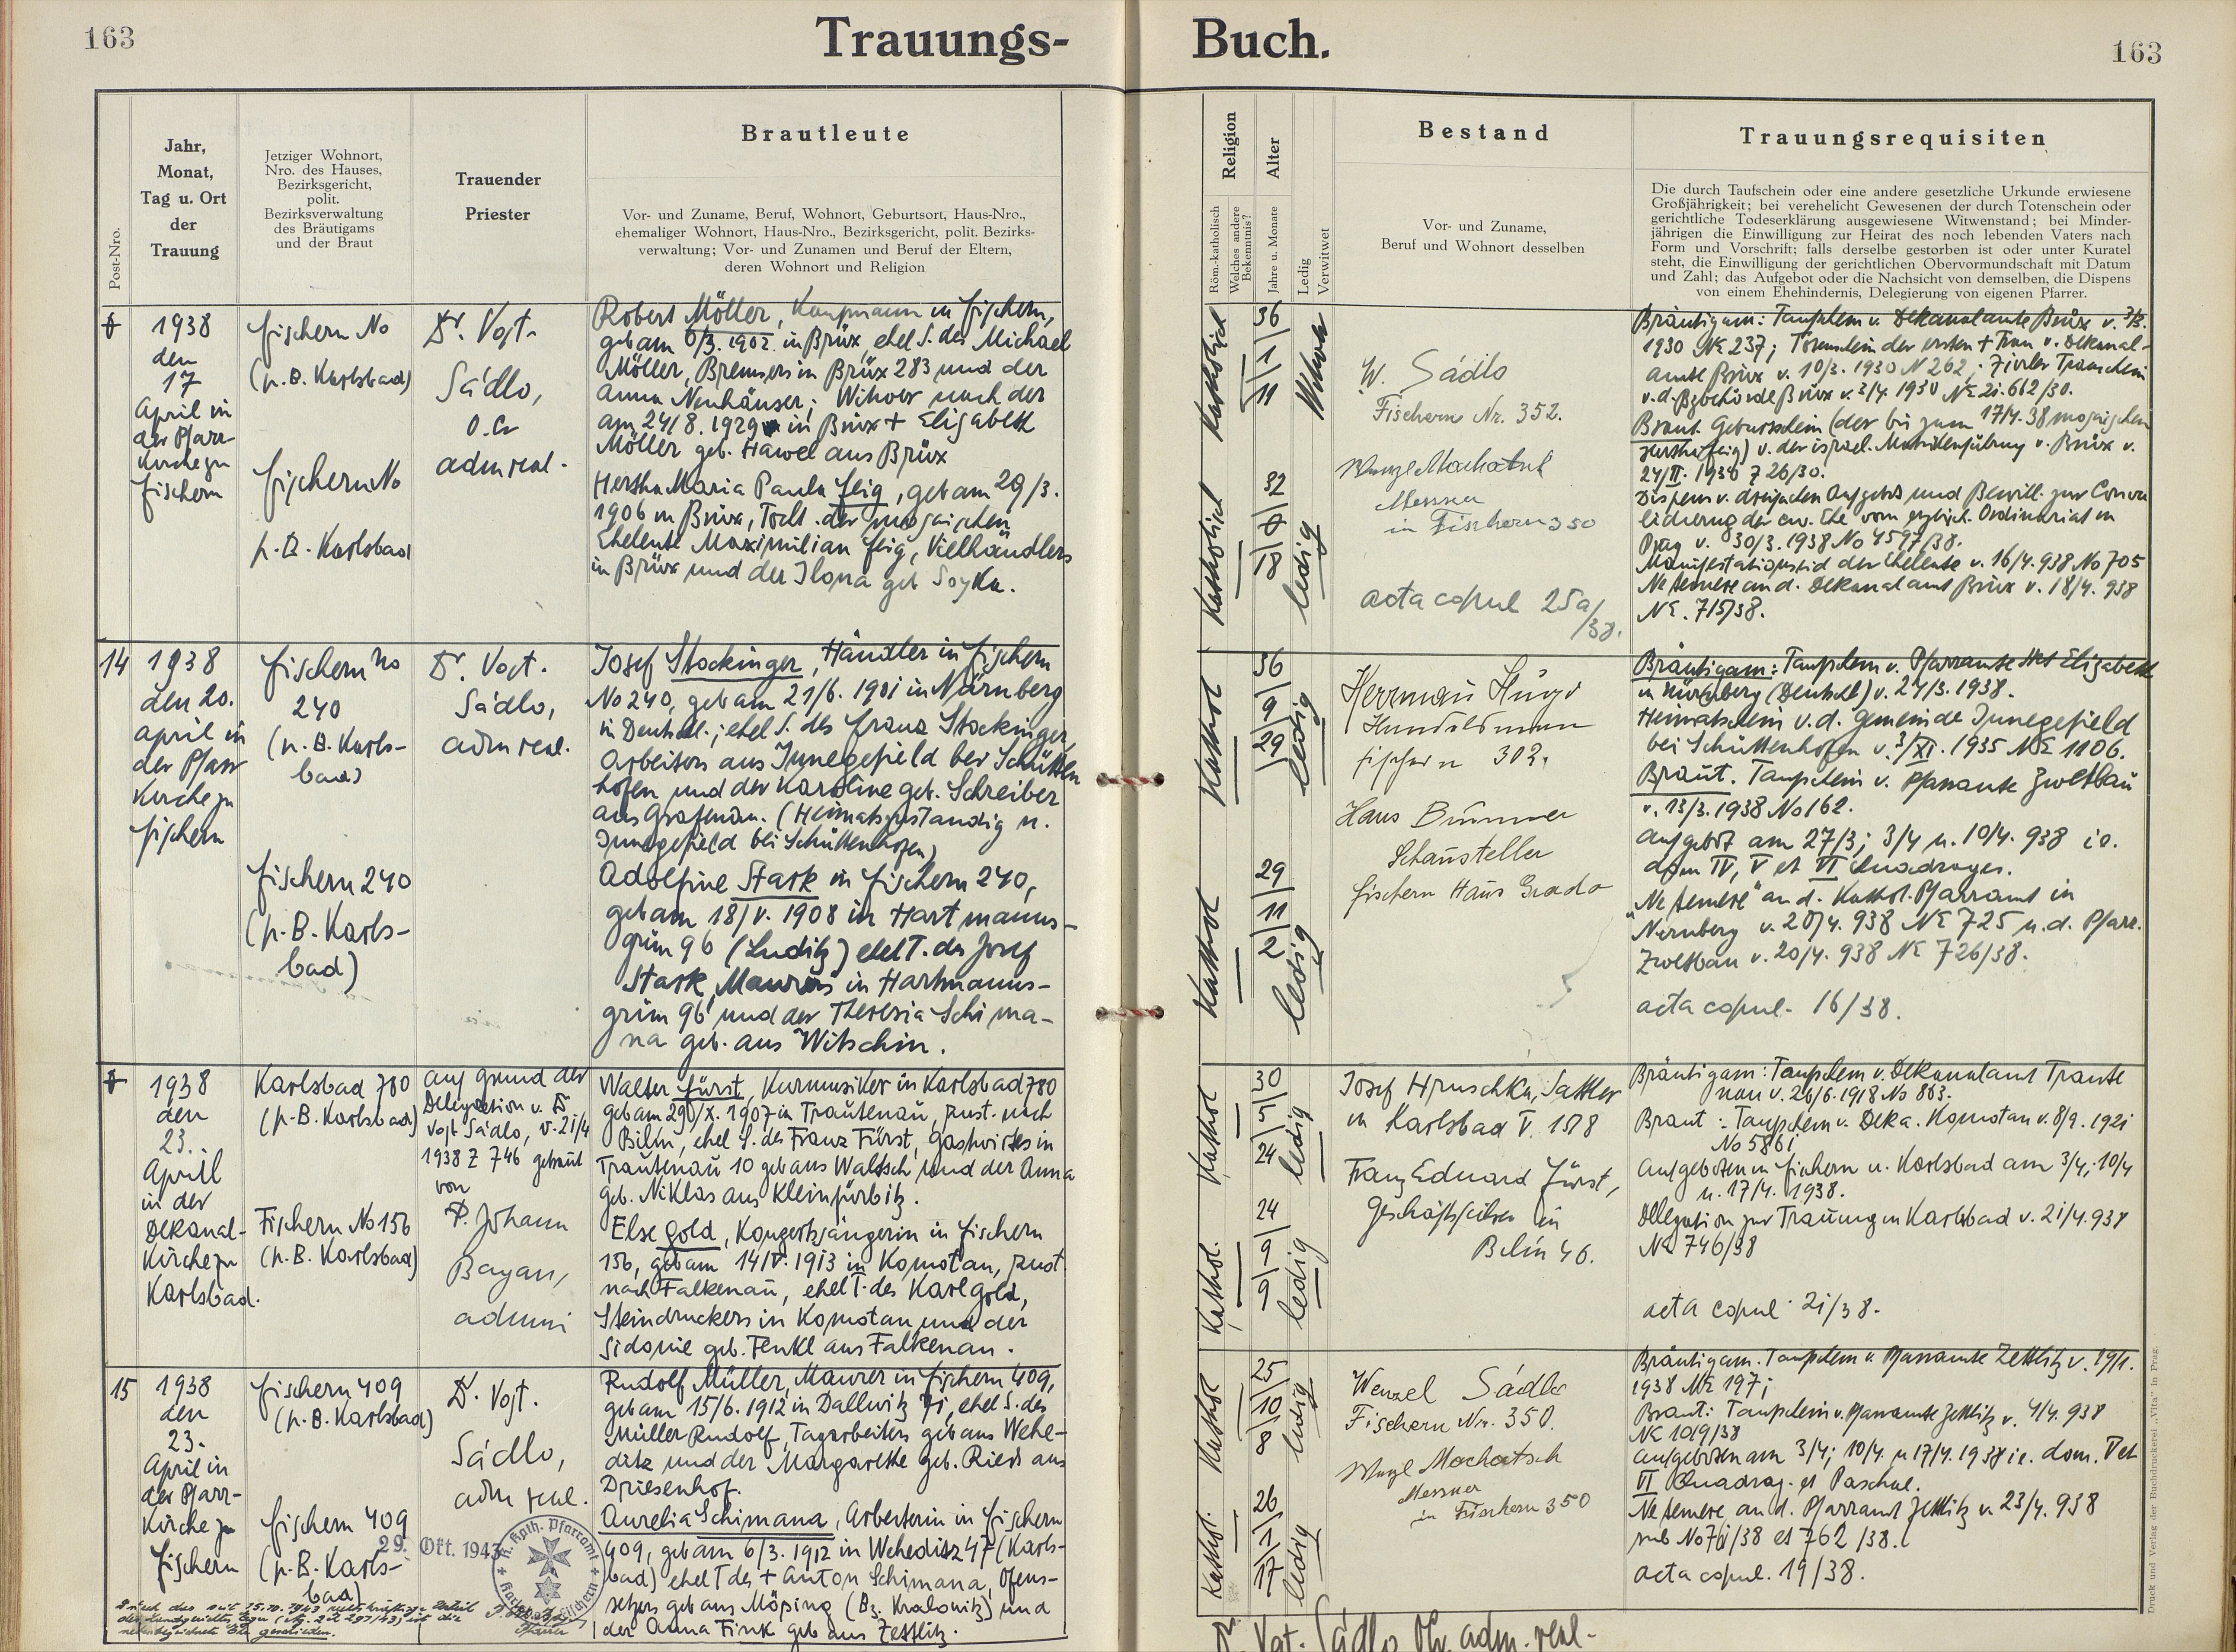 163
Trauungs-
Buch.
163
Post-Nro.
Jahr,
Monat,
Tag u. Ort
der
Trauung
Jetziger Wohnort,
Nro. des Hauses,
Bezirksgericht,
polit.
Bezirksverwaltung
des Bräutigams
und der Braut
Trauender
Priester
Brautleute
Vor- und Zuname, Beruf, Wohnort, Geburtsort, Haus-Nro.,
ehemaliger Wohnort, Haus-Nro., Bezirksgericht, polit. Bezirks-
verwaltung; Vor- und Zunamen und Beruf der Eltern,
deren Wohnort und Religion
Religion
Röm.-katholisch
Welches andere
Bekenntnis?
Alter
Jahre u. Monate
Ledig
Verwitwet
Bestand
Vor- und Zuname,
Beruf und Wohnort desselben
Trauungsrequisiten
Die durch Taufschein oder eine andere gesetzliche Urkunde erwiesene
Großjährigkeit; bei verehelicht Gewesenen der durch Totenschein oder
gerichtliche Todeserklärung ausgewiesene Witwenstand; bei Minder-
jährigen die Einwilligung zur Heirat des noch lebenden Vaters nach
Form und Vorschrift; falls derselbe gestorben ist oder unter Kuratel
steht, die Einwilligung der gerichtlichen Obervormundschaft mit Datum
und Zahl; das Aufgebot oder die Nachsicht von demselben, die Dispens
von einem Ehehindernis, Delegierung von eigenen Pfarrer.
1938
den
17
April in
der Pfarr
Kirche zu
Fischern
Fischern No
(p.B. Karlsbad)
Fischern No
p.B. Karlsbad
Dr. Vojt.
Sádlo,
O.Cr
adm real.
Robert Möller, Kaufmann in Fischern,
geb am 6/3. 1902. in Brüx, ehel S. des Michael
Möller, Bremsers in Brüx 283 und der
Anna Neuhäuser; Witwer nach der
am 24/8. 1929 in Brüx + Elisabeth
Möller geb. Hawel aus Brüx
Hertha Maria Paula Feig, geb am 29/3.
1906 in Brüx, Tocht. der mosaischen
Eheleute Maximilian Feig, Viehhändlers
in Brüx und der Ilona geb Soyka.
Katholisch
36
1
11
Witwer
Katholisch
32
18
ledig
W. Sádlo
Fischern Nr. 352.
Wenzl Machatsch
Messner
in Fischern 350
acta copul 25a/38.
Bräutigam: Taufschein v. Dekanalamte Brüx v.
1930 No 237; Totenschein der ersten + Frau v. Dekanal-
amte Brüx v. 10/3. 1930 N 262; Ziviler Trauschein
v. d. Bzbehörde Brüx v. 3/4. 1930
Braut. Geburtsschein (der bis zum 17/4. 38 mosaischen
Hertha Feig) v. der israel. Matrikenführung v. Brüx v.
24/II. 1930 Z 26/30.
Dispens v. dreifachen Aufgebot und Bewill. zur Conva
lidierung der civ. Ehe vom erzbisch. Ordinariat in
Prag v. 30/3. 1938 No 4597/38.
Manifestationseid der Eheleute v. 16/4. 938 No 705
Ne temere an d. Dekanalamt Brüx v. 18/4. 938
No. 715/38.
14
1938
den 20.
April in
der Pfarr
Kirche zu
Fischern
Fischern No
240
(p.B. Karls-
bad)
Fischern 240
(p.B. Karls-
bad)
Dr. Vojt.
Sádlo,
adm real.
Josef Stockinger, Händler in Fischern
No 240, geb am 21/6. 1901 in Nürnberg
in Deutschl.; ehel S. des Franz Stockinger,
Arbeiters aus Innegefield bei Schütten
hofen und der Karoline geb. Schreiber
aus Grafenau. (Heimatzuständig n.
Innegefield bei Schüttenhofen)
Adolfine Stark in Fischern 240,
geb am 18/V. 1908 in Hartmanns-
grün 96 (Luditz) ehel T. des Josef
Stark, Maurers in Hartmanns-
grün 96 und der Theresia Schima-
na geb. aus Witschin.
Kathol
36
9
29
ledig
Kathol
29
11
2
ledig
Herrmann Hugo
Handelsmann
Fischern 302.
Hans Brunner
Schausteller
Fischern Haus Grado
Bräutigam: Taufschein v. Pfarramte Set Elisabeth
in Nürnberg (Deutschl) v. 24/3. 1938.
Heimatschein v. d. Gemeinde Innegefield
bei Schüttenhofen v. 3/XI. 1935 No 1106.
Braut. Taufschein v. Pfarramte Zwolbau
v. 13/3. 1938 No 162.
Aufgebot am 27/3; 3/4 u. 10/4. 938 i.e.
dom IV, V et VI Quadrages.
"Ne temere" an d. Kathol. Pfarramt in
Nürnberg v. 20/4. 938 No 725 u. d. Pfarr.
Zwolbau v. 20/4. 938 No 726/38.
acta copul. 16/38.
1938
den
23.
April
in der
Dekanal-
Kirche zu
Karlsbad.
Karlsbad 780
(p.B. Karlsbad)
Fischern No 156
(p.B. Karlsbad)
Auf Grund der
Delegation v. Dr
Vojt Sádlo, v. 21/4
1938 Z 746 getraut
von
P. Johann
Bayan,
admini
Walter Fürst, Kurmusiker in Karlsbad 780
geb am 29/X. 1907 in Trautenau, zust. nach
Bilin, ehel S. des Franz Fürst, Gastwirtes in
Trautenau 10 geb aus Waltsch und der Anna
geb. Niklas aus Kleinfürbitz.
Else Gold, Konzertsängerin in Fischern
156, geb am 14/V. 1913 in Komotau, zust.
nach Falkenau, ehel T. des Karl Gold,
Steindruckers in Komotau und der
Sidonie geb. Fenkl aus Falkenau.
Kathol
30
5
24
ledig
Kathol.
24
9
9
ledig
Josef Hruschka, Sattler
in Karlsbad V. 1578
Franz Eduard Fürst,
Geschäftsführer in
Bilin 46.
Bräutigam: Taufschein v. Dekanalamt Traute
nau v. 26/6. 1918 No 863.
Braut: Taufschein v. Deka. Komotau v. 8/9. 1921
No 5861
Aufgeboten in Fischern u. Karlsbad am 3/4; 10/4
u. 17/4. 1938.
Delegation zur Trauung in Karlsbad v. 21/4. 938
No 746/38
acta copul. 21/38.
15
1938
den
23.
April in
der Pfarr-
Kirche zu
Fischern
Fischern 409
(p.B. Karlsbad)
Fischern 409
(p.B. Karls-
bad)
Dr. Vojt.
Sádlo,
adm real.
29. Okt. 1943
Rudolf Müller, Maurer in Fischern 409,
geb am 15/6. 1912 in Dallwitz 71, ehel S. des
Müller Rudolf, Tagarbeiters geb aus Wehe-
ditz und der Margarethe geb. Riedl aus
Driesenhof.
Aurelia Schimana, Arbeiterin in Fischern
409, geb am 6/3. 1912 in Wehediz 47 (Karls-
bad) ehel T des + Anton Schimana, Ofen-
setzers geb aus Möping (Bz. Kralowitz) und
der Anna Fink geb aus Zettlitz.
Kathol
25
10
8
ledig
Kathol.
26
1
17
ledig
Wenzel Sádlo
Fischern Nr. 350.
Wenzl Machatsch
Messner
in Fischern 350
Bräutigam. Taufschein v. Pfarramte Zettlitz v. 19/1.
1938 No 197;
Braut: Taufschein v. Pfarramte Zettlitz v. 4/4. 938
No 1019/38
Aufgeboten am 3/4; 10/4. u 17/4. 1938 i.e. dom. V et
VI Quadrag. et Paschal.
Ne temere an d. Pfarramt Zettlitz v. 23/4. 938
sub No 761/38 et 762/38.
acta copul. 19/38.
Vojt. Sádlo Obr. adm. real-
Druck und Verlag der Buchdruckerei „Vita" in Prag.